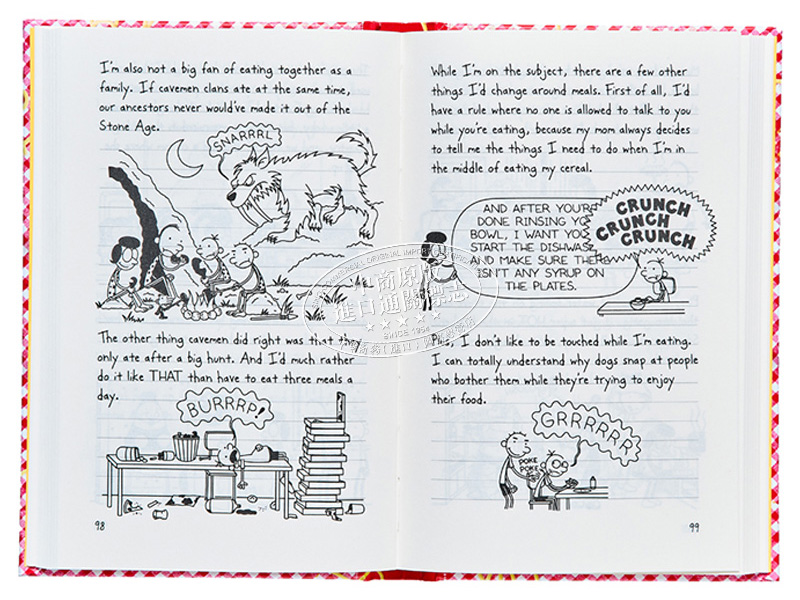 I'm also not a big fan of eating together as a
family. If cavemen clans ate at the same time,
our ancestors never would've made it out of the
Stone Age.
SNARRRL
The other thing cavemen did right was that they
only ate after a big hunt. And I'd much rather
do it like THAT than have to eat three meals a
day.
BURRRP!
98
While I'm on the subject, there are a few other
things I'd change around meals. First of all, I'd
have a rule where no one is allowed to talk to you
while you're eating, because my mom always decides
to tell me the things I need to do when I'm in
the middle of eating my cereal.
AND AFTER YOU'RE
DONE RINSING YO
BOWL, I WANT YOU
START THE DISHWAS
AND MAKE SURE THERE
ISN'T ANY SYRUP ON
THE PLATES.
CRUNCH
CRUNCH
CRUNCH
Plus, I don't like to be touched while I'm eating.
I can totally understand why dogs snap at people
who bother them while they're trying to enjoy
their food.
GRRRRRR
POKE
POKE
99
SINCE 1954